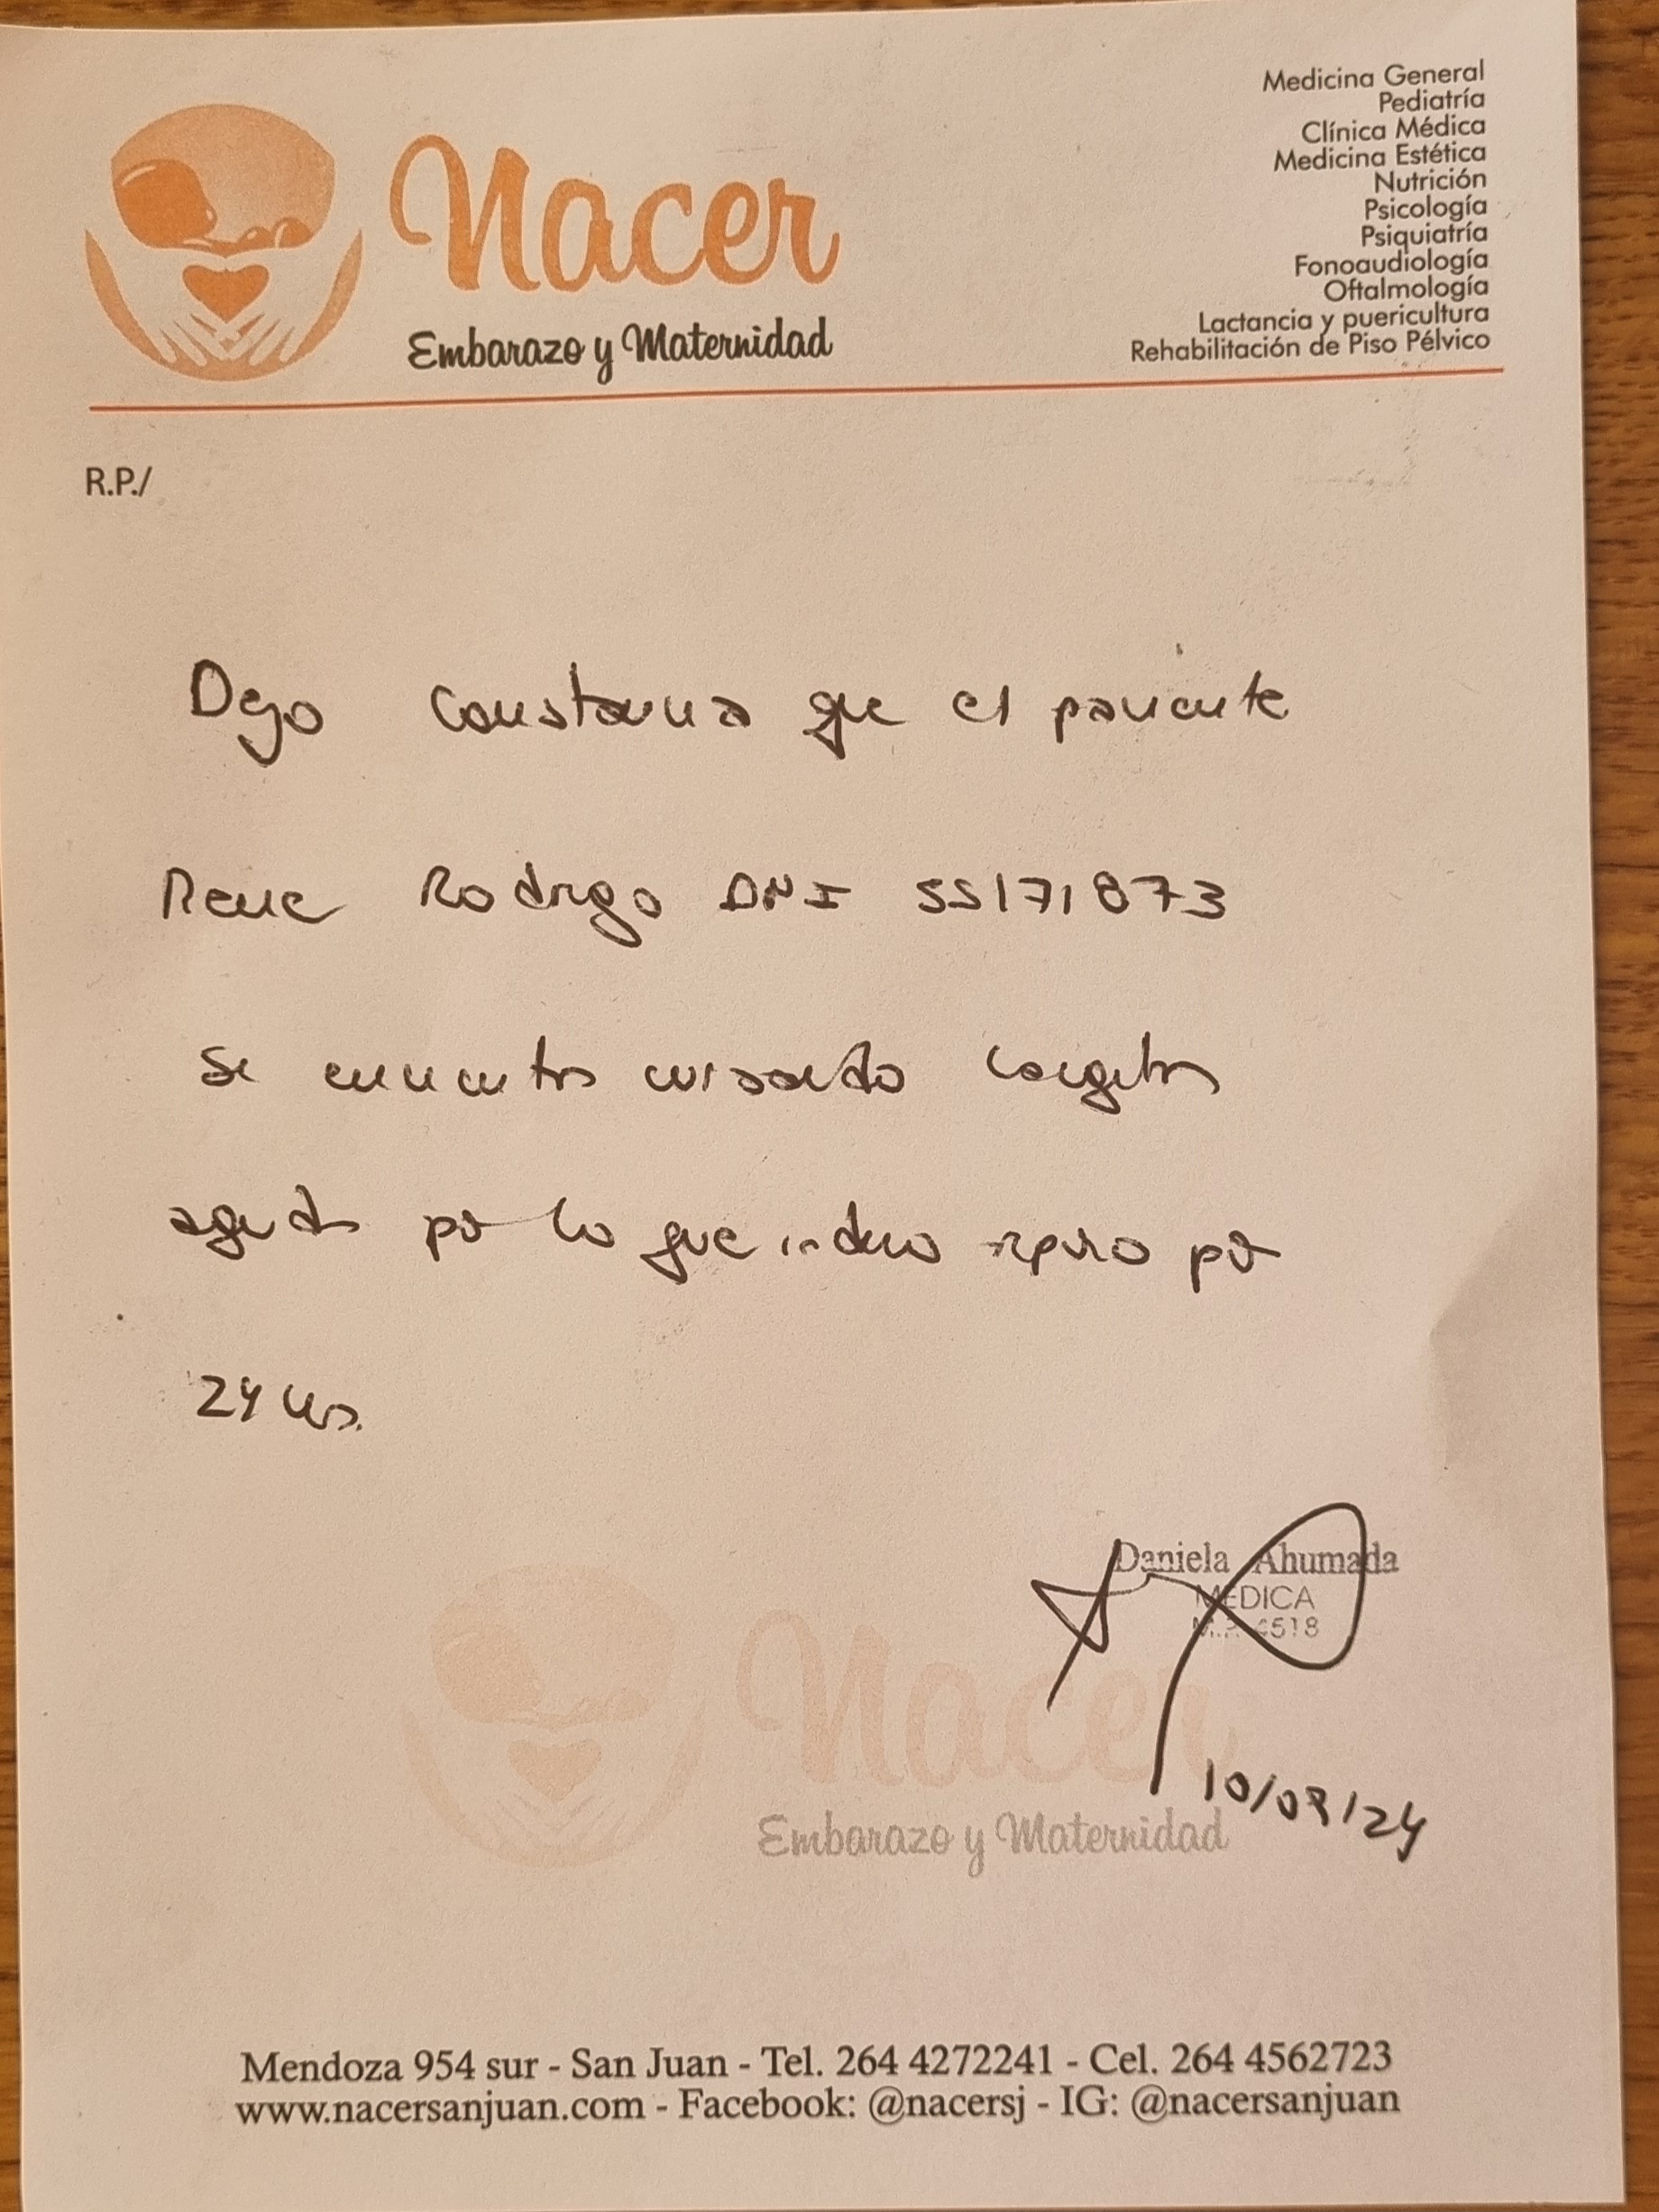 Nacer
Embarazo y Maternidad
Medicina General
Pediatría
Clínica Médica
Medicina Estética
Nutrición
Psicología
Psiquiatría
Fonoaudiología
Oftalmología
Lactancia y puericultura
Rehabilitación de Piso Pélvico
R.P./
Dejo constancia que el paciente
Rene Rodrigo DNI 55171873
se encuentra cursando laringitis
aguda por lo que indico reposo por
24 hs.
Daniela Ahumada
MEDICA
M.P. 4518
10/09/24
Nacer
Embarazo y Maternidad
Mendoza 954 sur - San Juan - Tel. 264 4272241 - Cel. 264 4562723
www.nacersanjuan.com - Facebook: @nacersj - IG: @nacersanjuan